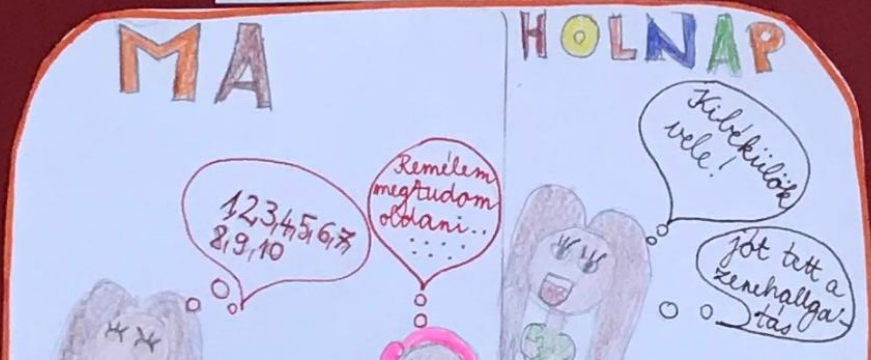 MA
1,2,3,4,5,6,7,
8,9,10
Remélem
megtudom
oldani..
.....
HOLNAP
Kibékülök
vele!
jót tett a
zenehallga-
tás